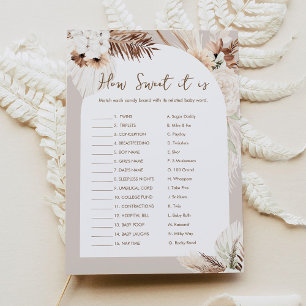 How Sweet it is
Match each candy brand with its related baby word.
1. TWINS
2. TRIPLETS
3. CONCEPTION
4. BREASTFEEDING
5. BOY NAME
6. GIRL'S NAME
7. DATE'S NAME
8. SLEEPLESS NIGHTS
9. UMBILICAL CORD
10. COLLEGE FUND
11. CONTRACTIONS
12. HOSPITAL BILL
13. BABY POOP
14. BABY LAUGHS
15. NAP TIME
A. Sugar Daddy
B. Mike & Ike
C. PayDay
D. Twizzlers
E. Skor
F. 3 Musketeers
G. 100 Grand
H. Whoppers
I. Take Five
J. Snickers
K. Twix
L. Baby Ruth
M.
N. Milky Way
O. Rocky Road